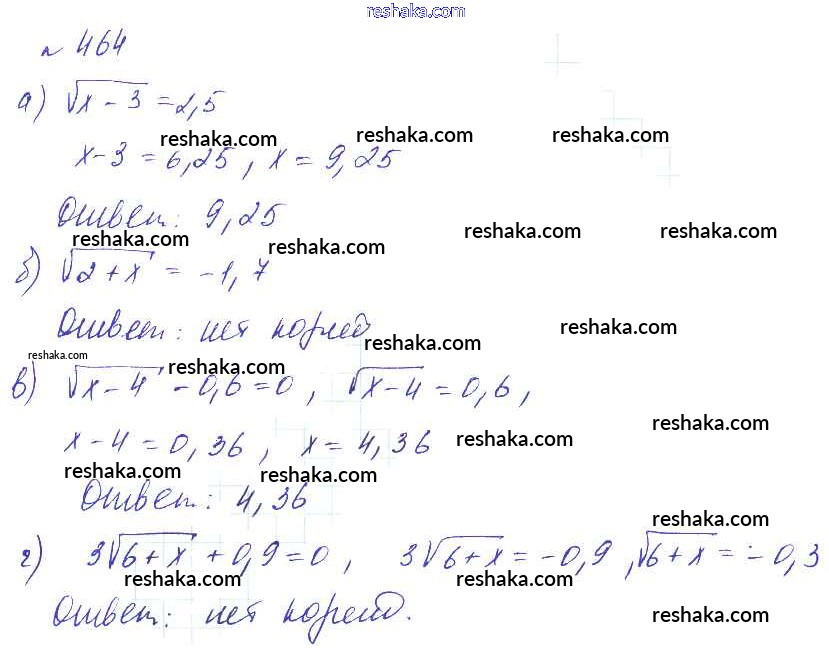 reshaka.com
№ 464
а) √x-3 = 2,5
reshaka.com reshaka.com reshaka.com
x-3 = 6,25, x = 9,25
Ответ: 9,25
reshaka.com reshaka.com reshaka.com reshaka.com
б) √2+x = -1,7
Ответ: нет корней
reshaka.com reshaka.com reshaka.com reshaka.com
в) √x-4 - 0,6 = 0, √x-4 = 0,6,
reshaka.com
x-4 = 0,36, x = 4,36
reshaka.com reshaka.com reshaka.com
Ответ: 4,36
reshaka.com
г) 3√6+x + 0,9 = 0, 3√6+x = -0,9, √6+x = -0,3
reshaka.com reshaka.com
Ответ: нет корней.
reshaka.com